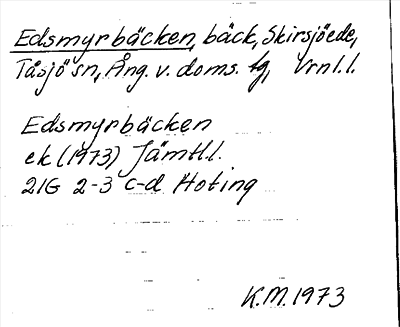 Edsmyrbäcken, bäck, Skirsjöede,
Tåsjö sn, Ång. v. doms. tg, Vrnl.l.
Edsmyrbäcken
ek (1973) Jämtl.l.
21G 2-3 c-d Hoting
K.M. 1973